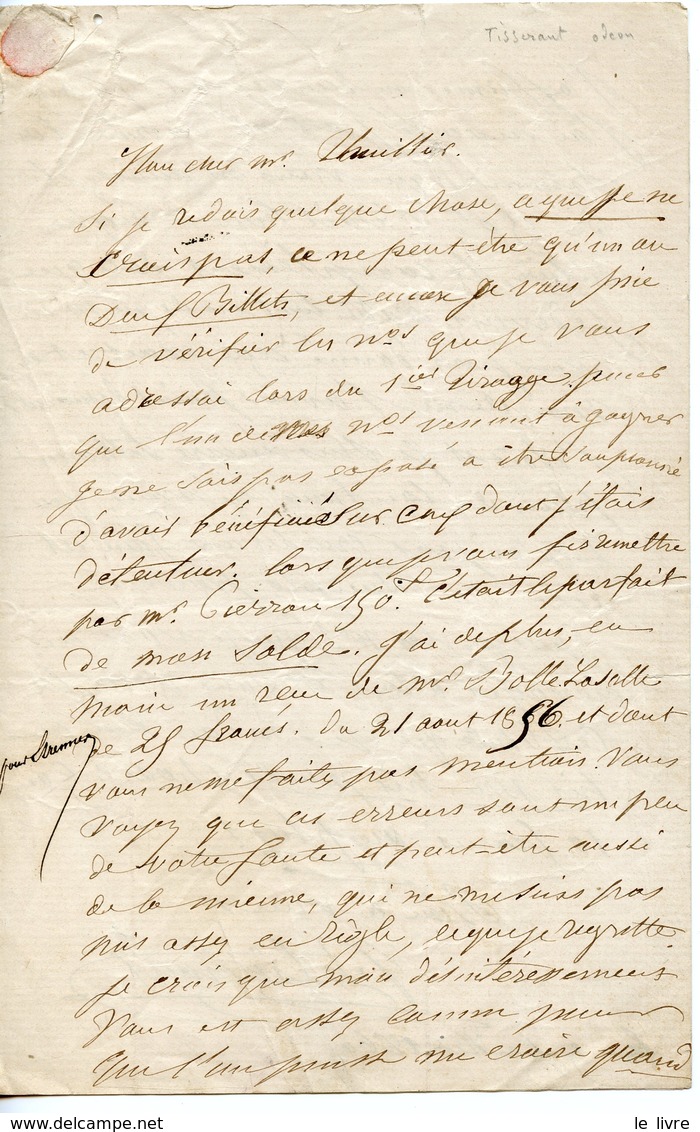 Tisserant odeon
Mon cher mr. Thuillier.
Si je redois quelque chose, ce que je ne
crois pas, ce ne peut être qu'un ou
Deux Billets, et encore je vous prie
de vérifier les nos que je vous
adressai lors du 1ier Tirage. parce
que l'un de mes nos venant à gagner
je ne sois pas exposé à être soupçonné
d'avoir bénéficié sur ceux dont j'étais
détenteur. lorsque je vous fis remettre
par mr. Pierron 150f. c'était le parfait
de mon solde. J'ai de plus, en
main un reçu de mr. Bolle Lasalle
de 25 francs. du 21 aout 1856. et dont
pour Étrennes
vous ne me faites pas mention. Vous
voyez que ces erreurs sont un peu
de votre faute et peut-être aussi
de la mienne, qui ne me suis pas
mis assez en règle, ce que je regrette.
je crois que mon désintéressement
vous est assez connu pour
que l'on puisse me croire quand
le livre